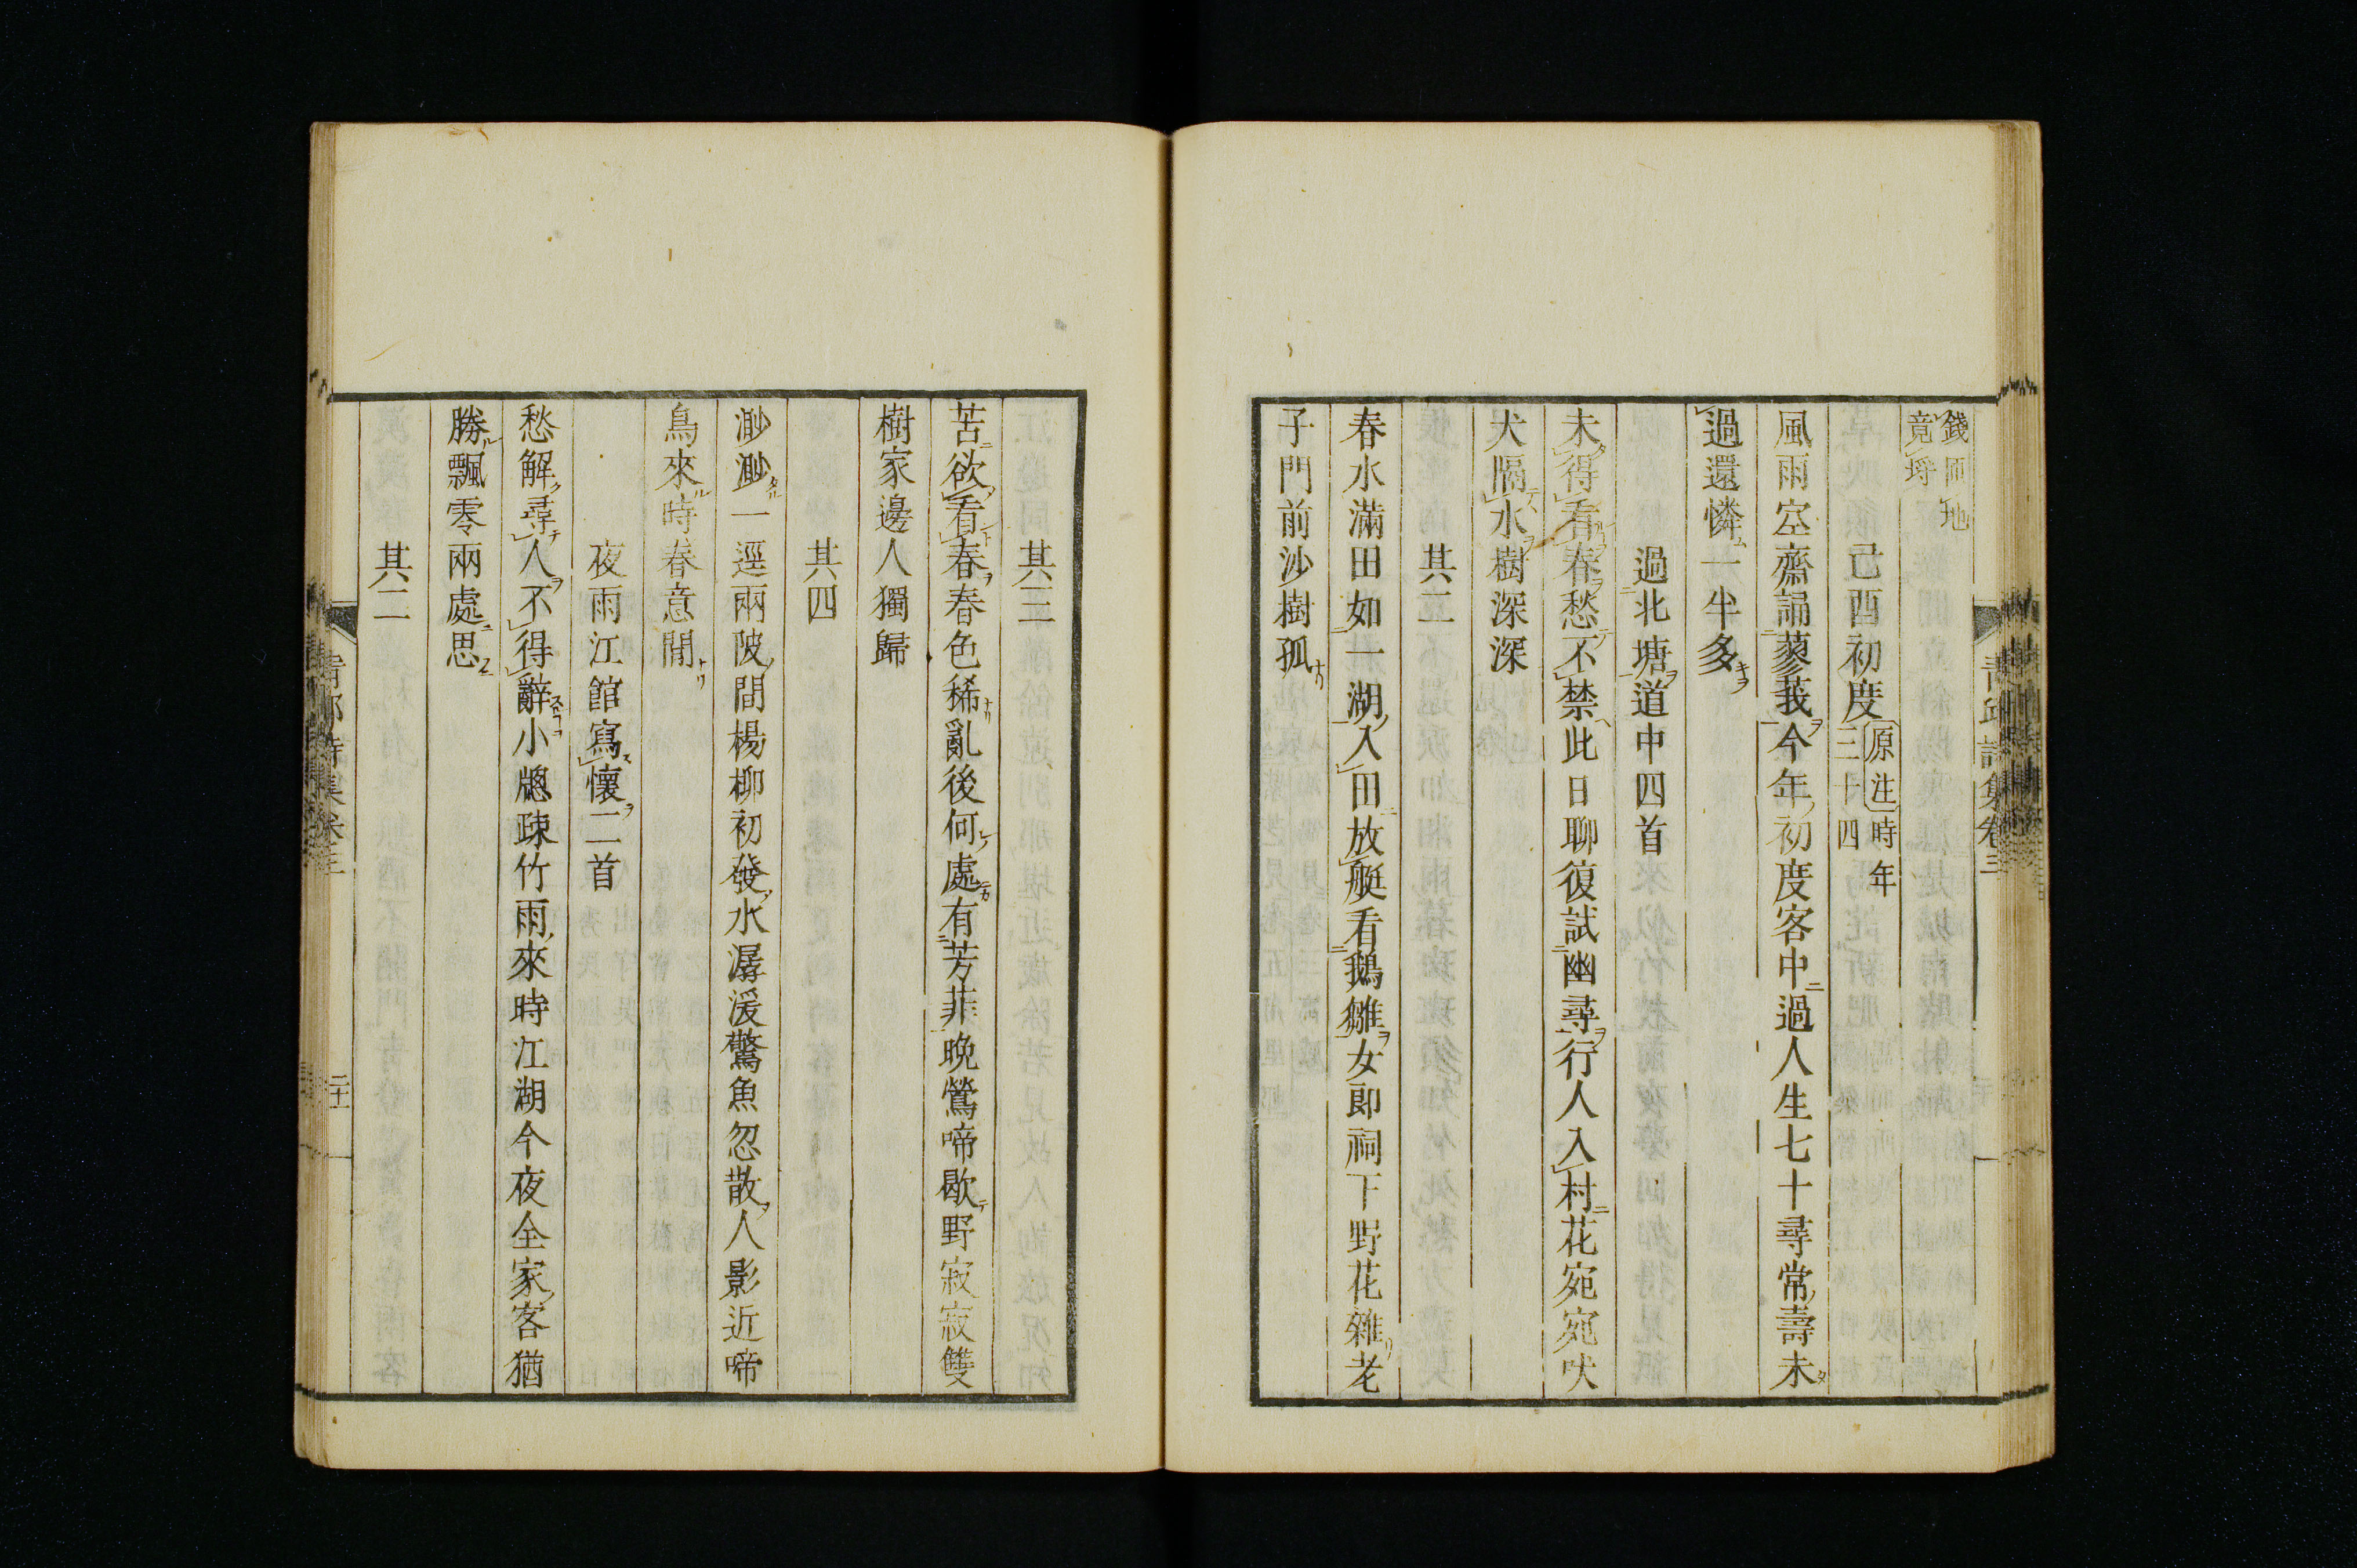 錢匝地
竟埒
己酉初度原注時年三十四
風雨空齋誦蓼莪今年初度客中過人生七十尋常壽未
過還憐一半多
過北塘道中四首
未得看春愁不禁此日聊復試幽尋行人入村花宛宛吠
犬隔水樹深深
其二
春水滿田如一湖入田放艇看鵝雛女郎祠下野花雜老
子門前沙樹孤
其三
苦欲看春春色稀亂後何處有芳菲晚鶯啼歇野寂寂雙
樹家邊人獨歸
其四
渺渺一逕兩陂間楊柳初發水潺湲驚魚忽散人影近啼
鳥來時春意閒
夜雨江館寫懷二首
愁解尋人不得辭小牕疎竹雨來時江湖今夜全家客猶
勝飄零兩處思
其二